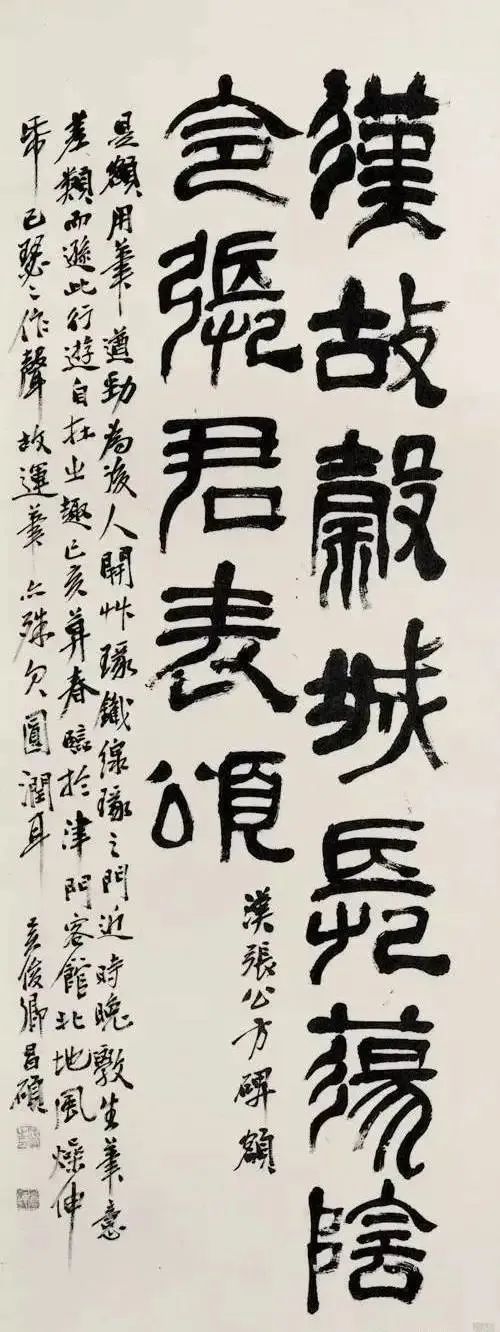 漢故穀城長蕩陰
令張君表頌
漢張公方碑額
是額用筆遒勁為後人開艸瑑鐵線瑑之門近時晚斅生筆意
差類而遜此行遊自在之趣己亥莫春臨於津門客館北地風燥伸
帋已瑟瑟作聲故運筆亦殊欠圓潤耳 吳俊卿昌碩